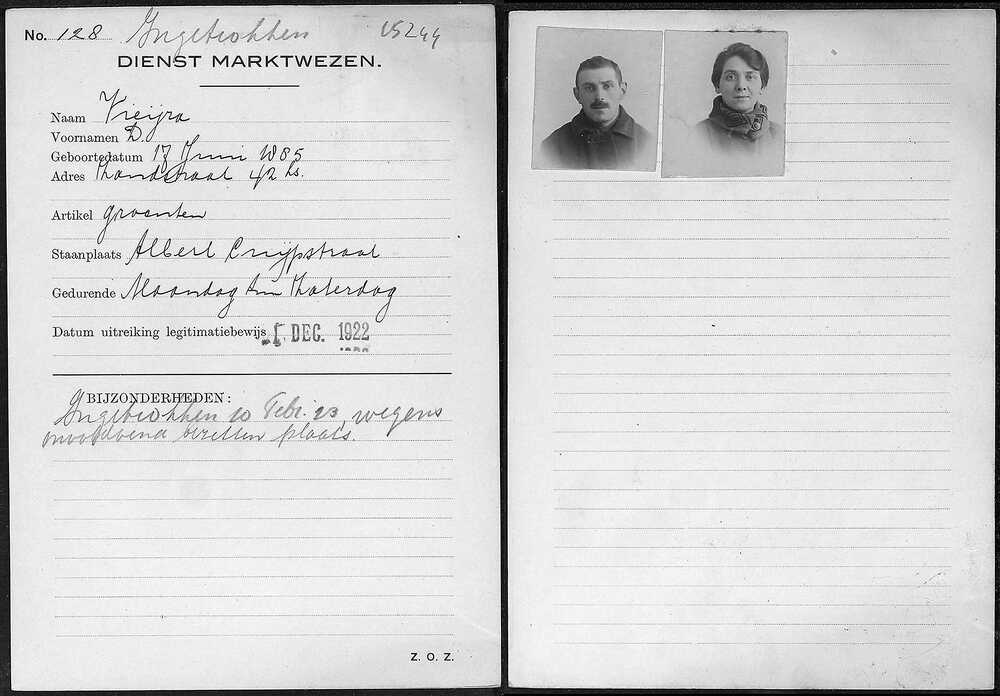 No. 128 Ingetrokken 15244
DIENST MARKTWEZEN.
Naam Vieijra
Voornamen D.
Geboortedatum 17 Juni 1885
Adres 42 hs.
Artikel groenten
Staanplaats Albert Cuijpstraat
Gedurende Maandag t/m Zaterdag
Datum uitreiking legitimatiebewijs DEC. 1922
BIJZONDERHEDEN:
Ingetrokken 10 Febr. 23, wegens
onvoldoend bezetten plaats.
Z. O. Z.